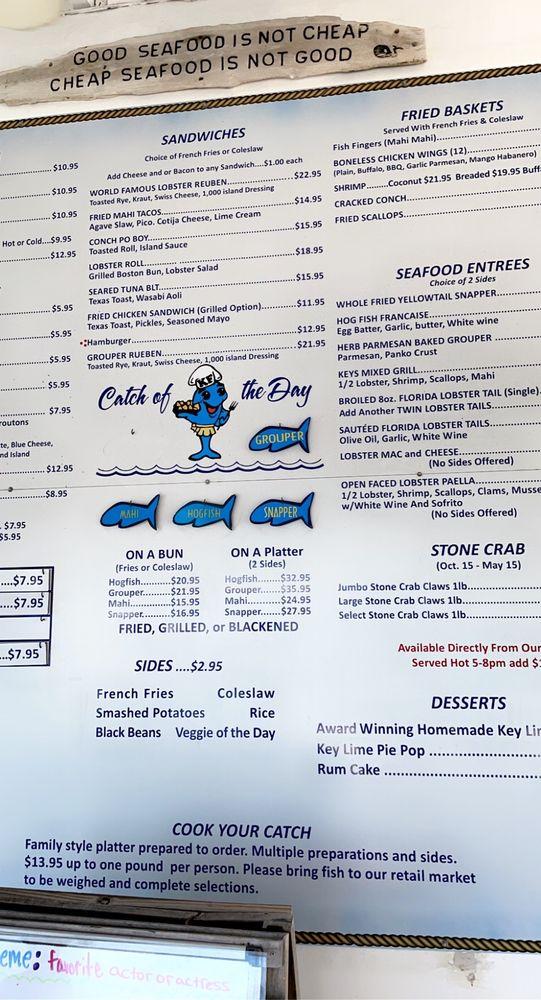 GOOD SEAFOOD IS NOT CHEAP
CHEAP SEAFOOD IS NOT GOOD
....$10.95
....$10.95
....$10.95
Hot or Cold...$9.95
....$12.95
....$5.95
....$5.95
....$5.95
....$5.95
....$7.95
routons
te, Blue Cheese,
nd Island
....$12.95
....$8.95
. $7.95
$5.95
....$7.95
....$7.95
...$7.95
SANDWICHES
Choice of French Fries or Coleslaw
Add Cheese or or Bacon to any Sandwich....$1.00 each
WORLD FAMOUS LOBSTER REUBEN....$22.95
Toasted Rye, Kraut, Swiss Cheese, 1,000 island Dressing
FRIED MAHI TACOS....$14.95
Agave Slaw, Pico. Cotija Cheese, Lime Cream
CONCH PO BOY....$15.95
Toasted Roll, Island Sauce
LOBSTER ROLL....$18.95
Grilled Boston Bun, Lobster Salad
SEARED TUNA BLT....$15.95
Texas Toast, Wasabi Aoli
FRIED CHICKEN SANDWICH (Grilled Option)....$11.95
Texas Toast, Pickles, Seasoned Mayo
Hamburger....$12.95
GROUPER RUEBEN....$21.95
Toasted Rye, Kraut, Swiss Cheese, 1,000 island Dressing
Catch of the Day
KF
GROUPER
MAHI HOGFISH SNAPPER
ON A BUN
(Fries or Coleslaw)
Hogfish.........$20.95
Grouper........$21.95
Mahi............$15.95
Snapper........$16.95
ON A Platter
(2 Sides)
Hogfish........$32.95
Grouper.......$35.95
Mahi...........$24.95
Snapper.......$27.95
FRIED, GRILLED, or BLACKENED
SIDES ....$2.95
French Fries Coleslaw
Smashed Potatoes Rice
Black Beans Veggie of the Day
FRIED BASKETS
Served With French Fries & Coleslaw
Fish Fingers (Mahi Mahi)....
BONELESS CHICKEN WINGS (12)....
(Plain, Buffalo, BBQ, Garlic Parmesan, Mango Habanero)
SHRIMP........Coconut $21.95 Breaded $19.95 Buff
CRACKED CONCH....
FRIED SCALLOPS....
SEAFOOD ENTREES
Choice of 2 Sides
WHOLE FRIED YELLOWTAIL SNAPPER....
HOG FISH FRANCAISE....
Egg Batter, Garlic, butter, White wine
HERB PARMESAN BAKED GROUPER
Parmesan, Panko Crust
KEYS MIXED GRILL....
1/2 Lobster, Shrimp, Scallops, Mahi
BROILED 8oz. FLORIDA LOBSTER TAIL (Single).
Add Another TWIN LOBSTER TAILS....
SAUTÉED FLORIDA LOBSTER TAILS....
Olive Oil, Garlic, White Wine
LOBSTER MAC and CHEESE....
(No Sides Offered)
OPEN FACED LOBSTER PAELLA....
1/2 Lobster, Shrimp, Scallops, Clams, Musse
w/White Wine And Sofrito
(No Sides Offered)
STONE CRAB
(Oct. 15 - May 15)
Jumbo Stone Crab Claws 1lb....
Large Stone Crab Claws 1lb....
Select Stone Crab Claws 1lb....
Available Directly From Our
Served Hot 5-8pm add $1
DESSERTS
Award Winning Homemade Key Lim
Key Lime Pie Pop ....
Rum Cake ....
COOK YOUR CATCH
Family style platter prepared to order. Multiple preparations and sides.
$13.95 up to one pound per person. Please bring fish to our retail market
to be weighed and complete selections.
eme: favorite actor or actress